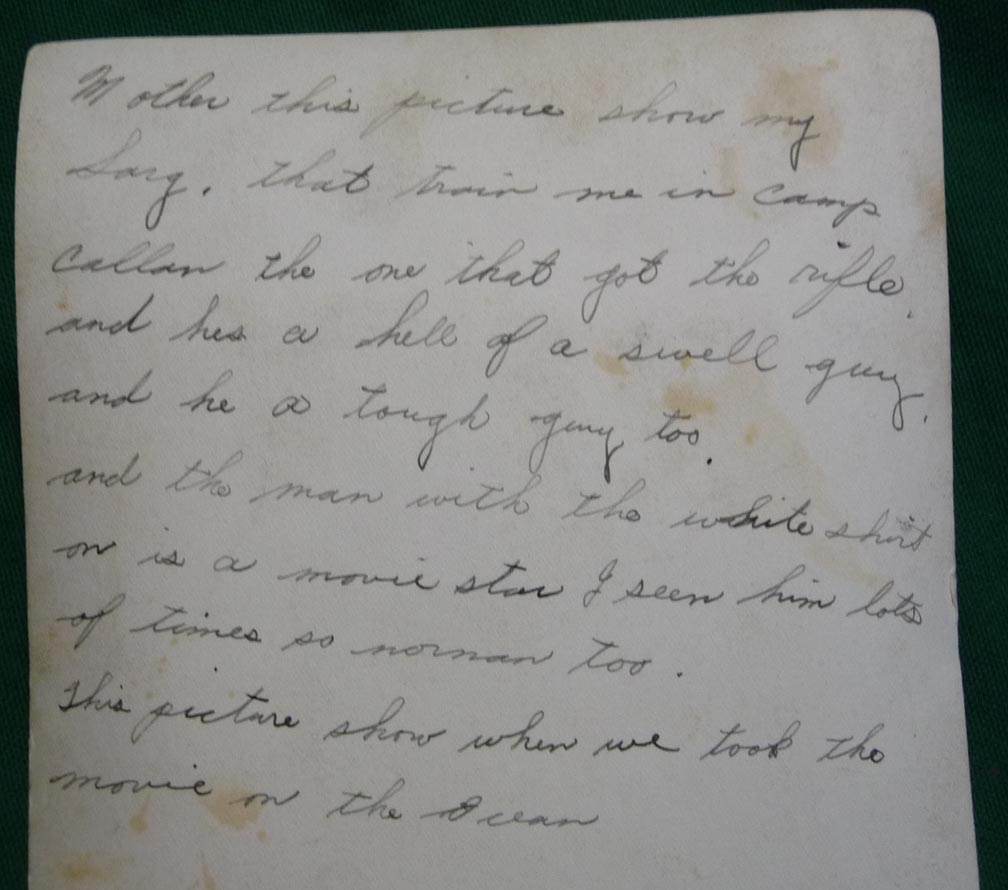 Mother this picture show my
Sarg. that train me in camp
callan the one that got the rifle.
and hes a hell of a swell guy.
and he a tough guy too.
and the man with the white shirt
on is a movie star I seen him lots
of times so norman too.
This picture show when we took the
movie on the Ocean